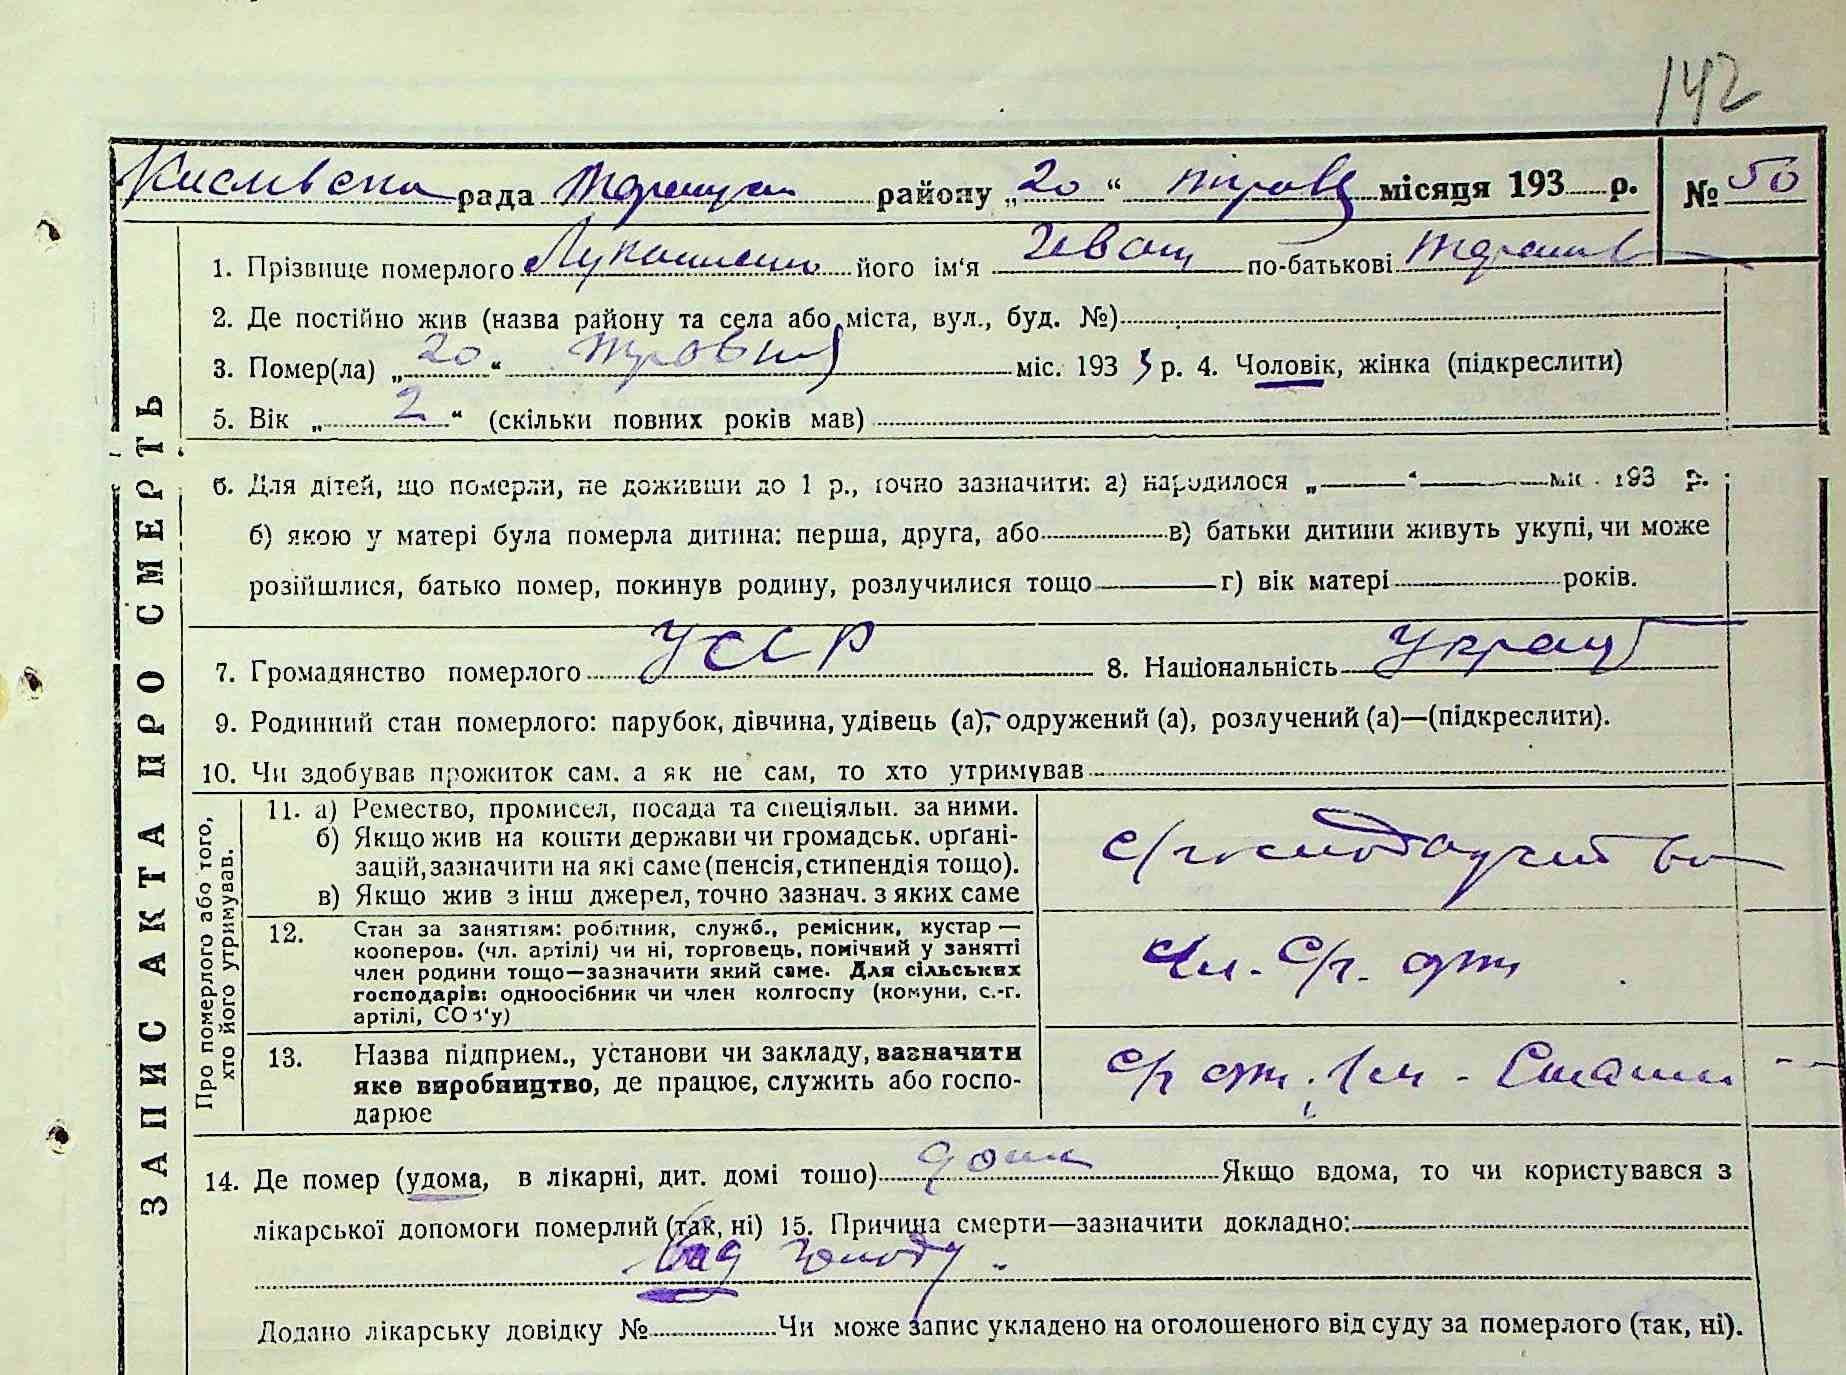 142
рада району „20“ травня місяця 193 р. № 50
ЗАПИС АКТА ПРО СМЕРТЬ
1. Прізвище померлого Лукашенко його ім'я Іван по-батькові
2. Де постійно жив (назва району та села або міста, вул., буд. №)
3. Помер(ла) „20“ травня міс. 1933 р. 4. Чоловік, жінка (підкреслити)
5. Вік „2“ (скільки повних років мав)
6. Для дітей, що померли, не доживши до 1 р., точно зазначити: а) народилося „ “ міс. 193 р.
б) якою у матері була померла дитина: перша, друга, або в) батьки дитини живуть укупі, чи може
розійшлися, батько помер, покинув родину, розлучилися тощо г) вік матері років.
7. Громадянство померлого УССР 8. Національність Украц
9. Родинний стан померлого: парубок, дівчина, удівець (а), одружений (а), розлучений (а)—(підкреслити).
10. Чи здобував прожиток сам, а як не сам, то хто утримував
Про померлого або того, хто його утримував.
11. а) Ремество, промисел, посада та спеціяльн. за ними.
б) Якщо жив на кошти держави чи громадськ. орґані-
зацій, зазначити на які саме (пенсія, стипендія тощо).
в) Якщо жив з інш джерел, точно зазнач. з яких саме
с/господарство
12. Стан за занятіям: робітник, служб., ремісник, кустар —
кооперов. (чл. артілі) чи ні, торговець, помічний у занятті
член родини тощо—зазначити який саме. Для сільських
господарів: одноосібник чи член колгоспу (комуни, с.-г.
артілі, СОЗ'у)
Чл. С/г. арт
13. Назва підприєм., установи чи закладу, зазначити
яке виробництво, де працює, служить або госпо-
дарює
с/г арт. Ім. Сталіна
14. Де помер (удома, в лікарні, дит. домі тошо) дома Якщо вдома, то чи користувався з
лікарської допомоги померлий (так, ні) 15. Причина смерти—зазначити докладно:
Від голоду.
Додано лікарську довідку № Чи може запис укладено на оголошеного від суду за померлого (так, ні).